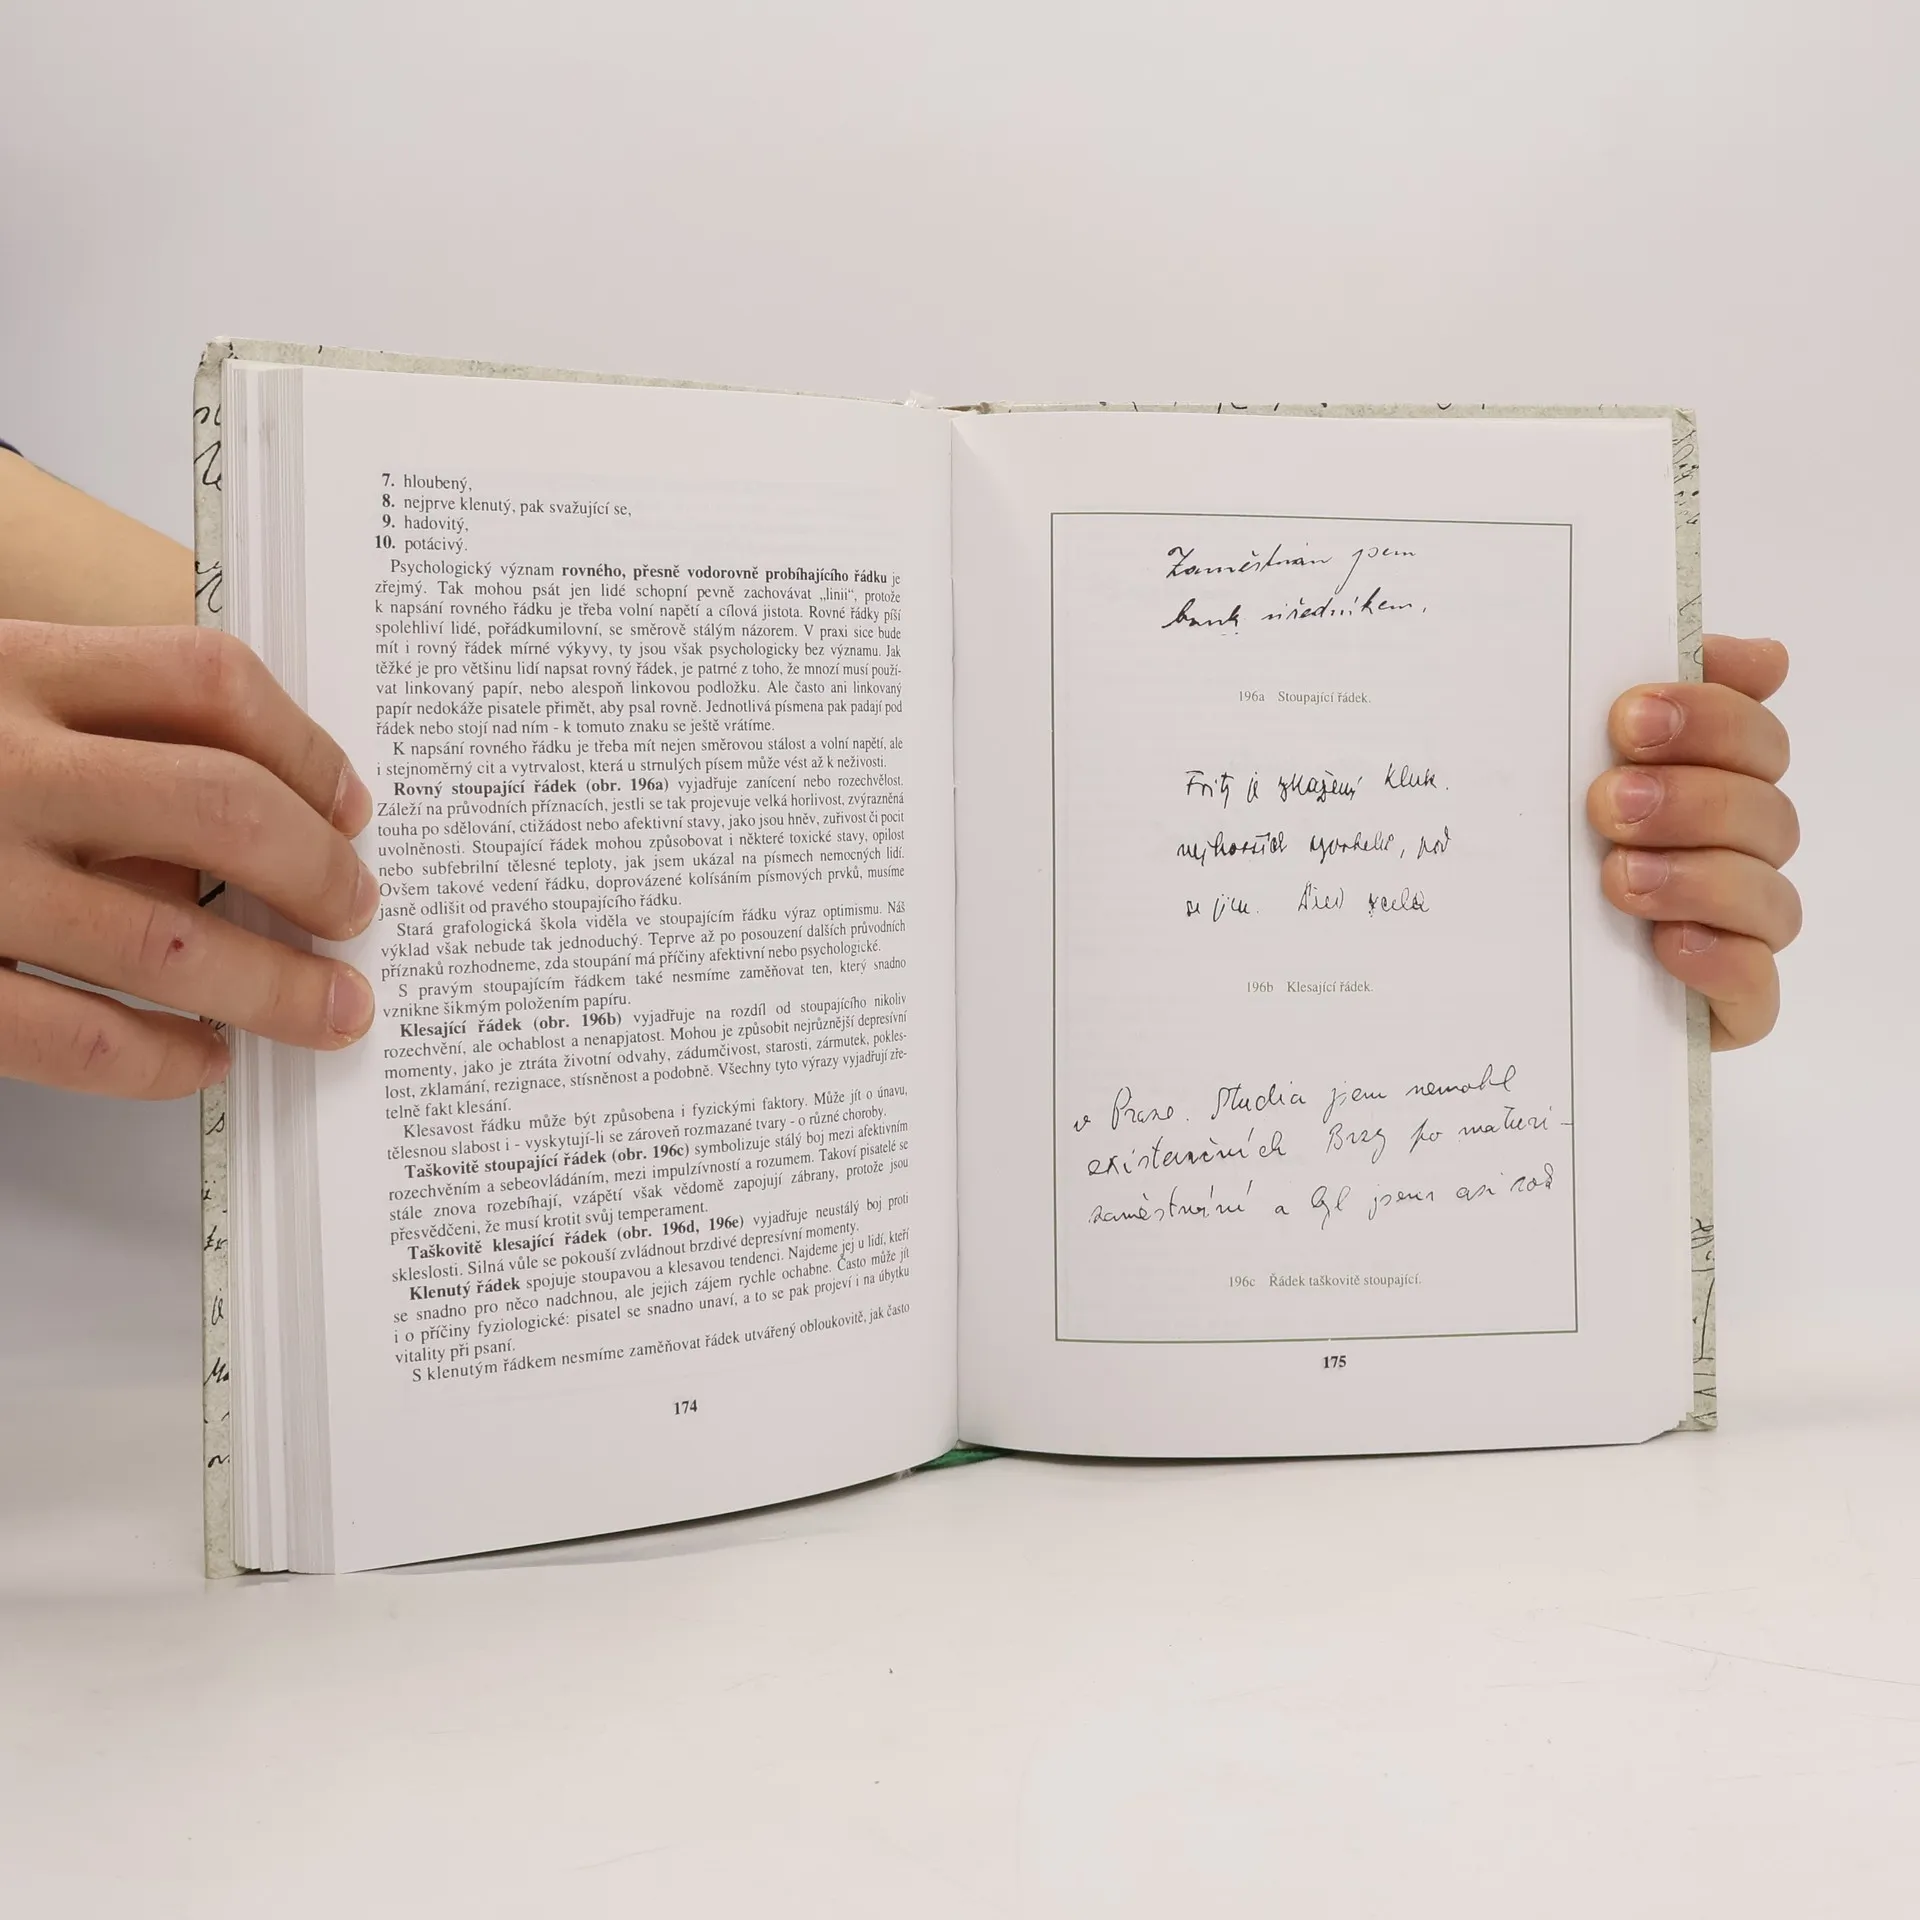 7. hloubený,
8. nejprve klenutý, pak svažující se,
9. hadovitý,
10. potácivý.
Psychologický význam rovného, přesně vodorovně probíhajícího řádku je
zřejmý. Tak mohou psát jen lidé schopní pevně zachovávat „linii“, protože
k napsání rovného řádku je třeba volní napětí a cílová jistota. Rovné řádky píší
spolehliví lidé, pořádkumilovní, se směrově stálým názorem. V praxi sice bude
mít i rovný řádek mírné výkyvy, ty jsou však psychologicky bez významu. Jak
těžké je pro většinu lidí napsat rovný řádek, je patrné z toho, že mnozí musí použí-
vat linkovaný papír, nebo alespoň linkovou podložku. Ale často ani linkovaný
papír nedokáže pisatele přimět, aby psal rovně. Jednotlivá písmena pak padají pod
řádek nebo stojí nad ním - k tomuto znaku se ještě vrátíme.
K napsání rovného řádku je třeba mít nejen směrovou stálost a volní napětí, ale
i stejnoměrný cit a vytrvalost, která u strnulých písem může vést až k neživosti.
Rovný stoupající řádek (obr. 196a) vyjadřuje zanícení nebo rozechvělost.
Záleží na průvodních příznacích, jestli se tak projevuje velká horlivost, zvýrazněná
touha po sdělování, ctižádost nebo afektivní stavy, jako jsou hněv, zuřivost či pocit
uvolněnosti. Stoupající řádek mohou způsobovat i některé toxické stavy, opilost
nebo subfebrilní tělesné teploty, jak jsem ukázal na písmech nemocných lidí.
Ovšem takové vedení řádku, doprovázené kolísáním písmových prvků, musíme
jasně odlišit od pravého stoupajícího řádku.
Stará grafologická škola viděla ve stoupajícím řádku výraz optimismu. Náš
výklad však nebude tak jednoduchý. Teprve až po posouzení dalších průvodních
příznaků rozhodneme, zda stoupání má příčiny afektivní nebo psychologické.
S pravým stoupajícím řádkem také nesmíme zaměňovat ten, který snadno
vznikne šikmým položením papíru.
Klesající řádek (obr. 196b) vyjadřuje na rozdíl od stoupajícího nikoliv
rozechvění, ale ochablost a nenapjatost. Mohou je způsobit nejrůznější depresívní
momenty, jako je ztráta životní odvahy, zádumčivost, starosti, zármutek, pokles-
lost, zklamání, rezignace, stísněnost a podobně. Všechny tyto výrazy vyjadřují zře-
telně fakt klesání.
Klesavost řádku může být způsobena i fyzickými faktory. Může jít o únavu,
tělesnou slabost i - vyskytují-li se zároveň rozmazané tvary - o různé choroby.
Taškovitě stoupající řádek (obr. 196c) symbolizuje stálý boj mezi afektivním
rozechvěním a sebeovládáním, mezi impulzívností a rozumem. Takoví pisatelé se
stále znova rozebíhají, vzápětí však vědomě zapojují zábrany, protože jsou
přesvědčeni, že musí krotit svůj temperament.
Taškovitě klesající řádek (obr. 196d, 196e) vyjadřuje neustálý boj proti
skleslosti. Silná vůle se pokouší zvládnout brzdivé depresívní momenty.
Klenutý řádek spojuje stoupavou a klesavou tendenci. Najdeme jej u lidí, kteří
se snadno pro něco nadchnou, ale jejich zájem rychle ochabne. Často může jít
i o příčiny fyziologické: pisatel se snadno unaví, a to se pak projeví i na úbytku
vitality při psaní.
S klenutým řádkem nesmíme zaměňovat řádek utvářený obloukovitě, jak často
174
Zaměstnán jsem
bank úředníkem,
196a Stoupající řádek.
Fritz je zkažený kluk.
se jen.
196b Klesající řádek.
v Praze. Studia jsem nemohl
existenčních Brzy po maturi-
zaměstnání a byl jsem asi rok
196c Řádek taškovitě stoupající.
175